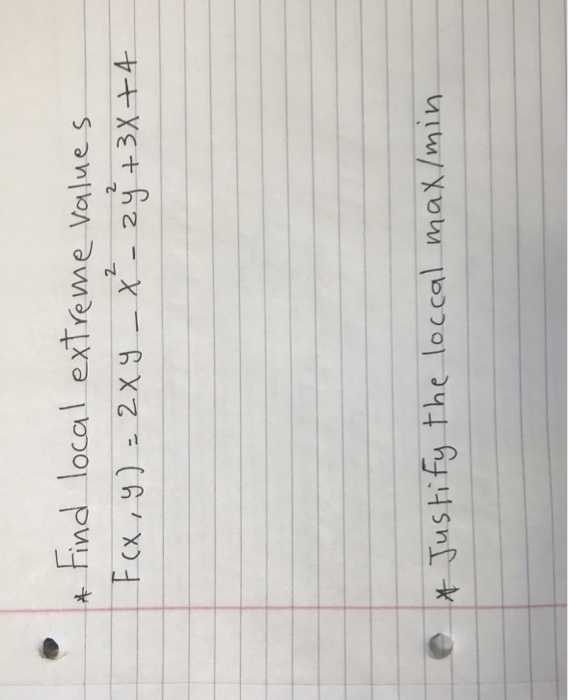 * Find local extreme values
F(x,y) = 2xy - x² - 2y² + 3x + 4
* Justify the loccal max/min